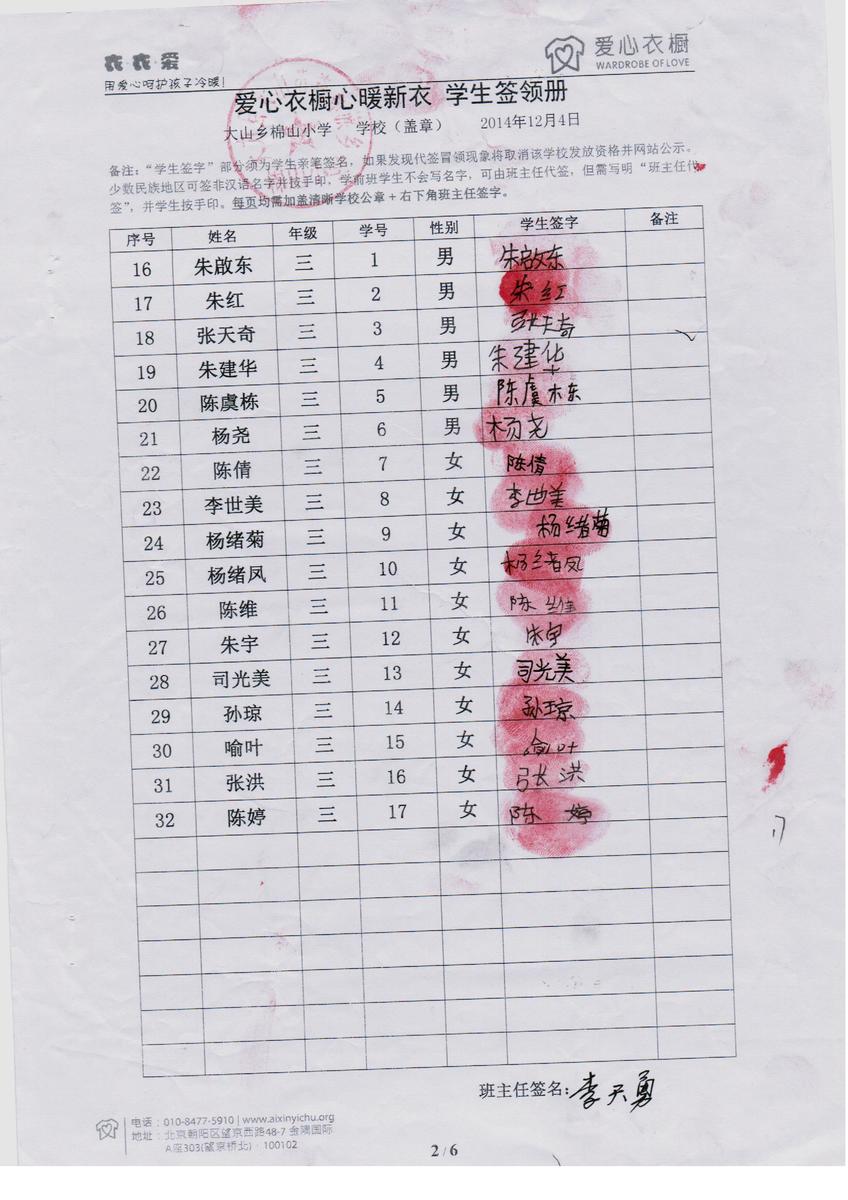 衣·衣·爱
用爱心呵护孩子冷暖!
爱心衣橱
WARDROBE OF LOVE
爱心衣橱心暖新衣 学生签领册
大山乡棉山小学 学校（盖章） 2014年12月4日
备注：“学生签字”部分须为学生亲笔签名，如果发现代签冒领现象将取消该学校发放资格并网站公示。
少数民族地区可签非汉语名字并按手印，学前班学生不会写名字，可由班主任代签，但需写明“班主任代
签”，并学生按手印。每页均需加盖清晰学校公章+右下角班主任签字。
序号 姓名 年级 学号 性别 学生签字 备注
16 朱啟东 三 1 男 朱啟东
17 朱红 三 2 男 朱红
18 张天奇 三 3 男 张天奇
19 朱建华 三 4 男 朱建华
20 陈虞栋 三 5 男 陈虞栋
21 杨尧 三 6 男 杨尧
22 陈倩 三 7 女 陈倩
23 李世美 三 8 女 李世美
24 杨绪菊 三 9 女 杨绪菊
25 杨绪凤 三 10 女 杨绪凤
26 陈维 三 11 女 陈维
27 朱宇 三 12 女 朱宇
28 司光美 三 13 女 司光美
29 孙琼 三 14 女 孙琼
30 喻叶 三 15 女 俞叶
31 张洪 三 16 女 张洪
32 陈婷 三 17 女 陈婷
班主任签名：李天勇
电话：010-8477-5910 | www.aixinyichu.org
地址：北京朝阳区望京西路48-7 金隅国际
A座303(望京桥北)·100102
2 / 6